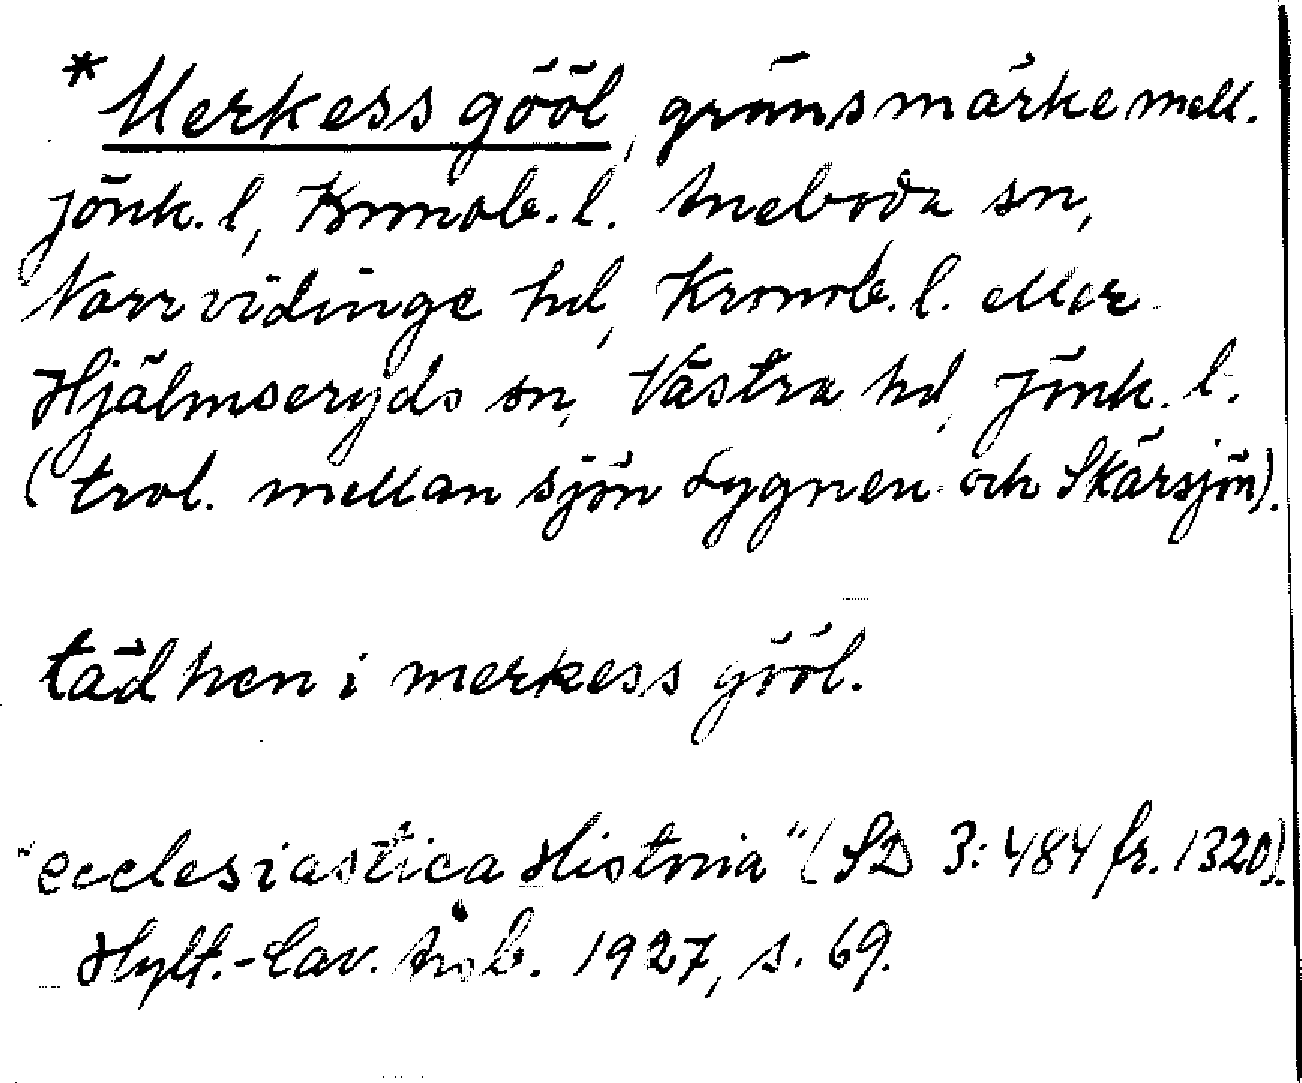 * Merkess gööl, gränsmärke mell.
Jönk. l, Kronob. l. Aneboda sn,
Norrvidinge hd, Kronob. l. eller
Hjälmseryds sn, Västra hd, Jönk. l.
(trol. mellan sjön Lygnen och Skärsjön).
tädhen i merkess gööl.
"ecclesiastica Historia" (SD 3:484 fr. 1320).
Hylt.-Cav. Årsb. 1927, s. 69.